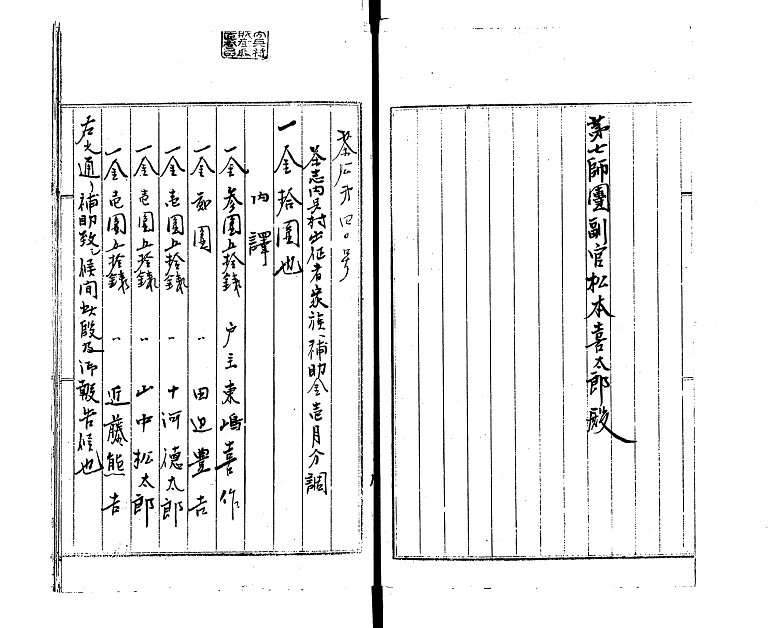 第七師團副官松本喜太郎殿
茶公第四〇号
茶志内兵村出征者家族補助金壱月分調
一金拾圓也
内譯
一金参圓五拾銭 户主 東嶋喜作
一金貳圓 〃 田辺豊吉
一金壱圓五拾銭 〃 十河徳太郎
一金壱圓五拾銭 〃 山中松太郎
一金壱圓五拾銭 〃 近藤熊吉
右之通リ補助致候間此段及御報告候也